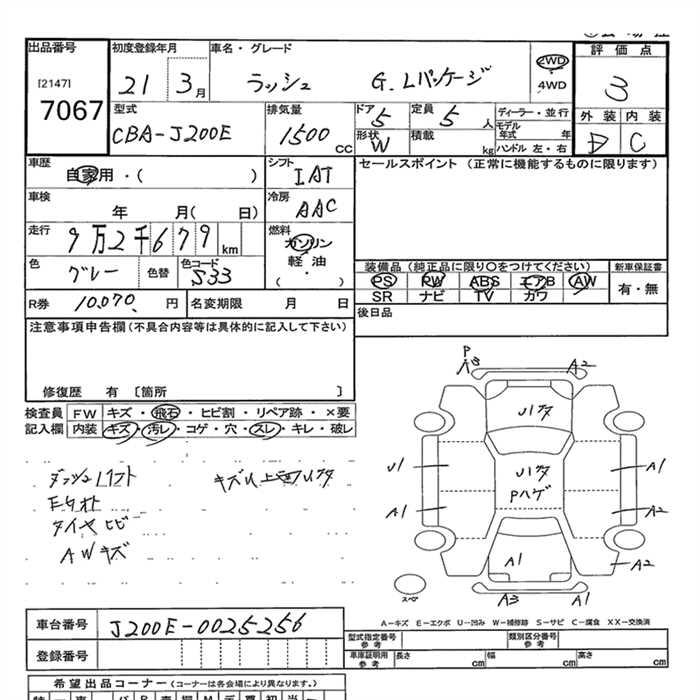 出品番号 初度登録年月 車名・グレード 評価点
[2147]
7067
21 3月 ラッシュ G.Lパッケージ 2WD 4WD 3
型式 排気量 ドア 定員 ディーラー・並行 外装 内装
CBA-J200E 1500cc 5 5人 モデル年式 年 D C
形状 積載 ハンドル 左・右
W kg
車歴 シフト セールスポイント (正常に機能するものに限ります)
自家用・( ) IAT
車検 冷房
年 月( 日) AAC
走行 燃料
9万2千679km ガソリン
軽油
( )
色 色替 色コード 装備品 (純正品に限り○をつけてください) 新車保証書
グレー S33 PS PW ABS エアB AW 有・無
SR ナビ TV カワ
R券 10.070.円 名変期限 月 日 後日品
注意事項申告欄(不具合内容等は具体的に記入して下さい)
修復歴 有 〔箇所 〕
検査員 FW キズ・飛石・ヒビ割・リペア跡・×要
記入欄 内装 キズ・汚レ・コゲ・穴・スレ・キレ・破レ
ダッシュ キズ
タイヤ ヒビ
AWキズ
P
A3 A2
U1 A1
Pハゲ
A1 A2
A1 A2
スペア A3 A1
A-キズ E-エクボ U-凹み W-補修跡 S-サビ C-腐食 XX-交換済
車台番号 J200E-0025256
登録番号
型式指定番号 参考 類別区分番号 参考
車庫証明用 参考 長さ cm 幅 cm 高さ cm
希望出品コーナー (コーナーは各会場により異なります。)